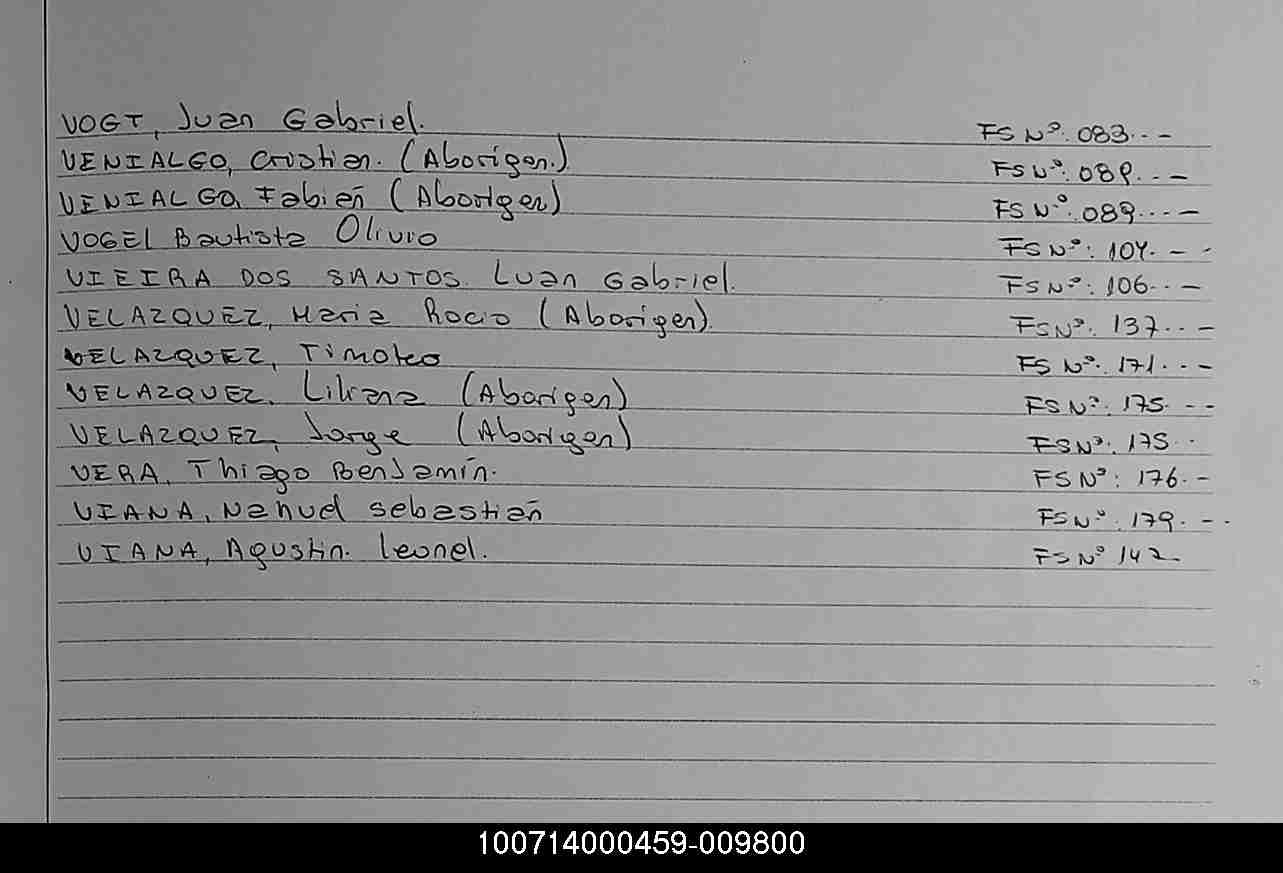 VOGT, Juan Gabriel. FS Nº. 083...-
VENIALGO, Cristian. (Aborigen.) FS Nº. 089...-
VENIALGO, Fabian (Aborigen) FS Nº. 089...-
VOGEL Bautista FS Nº: 104.--
VIEIRA DOS SANTOS. Luan Gabriel. FS Nº: 106..-
VELAZQUEZ, Maria Rocio (Aborigen). FS Nº. 137..-
VELAZQUEZ, Timoteo FS Nº. 171..-
VELAZQUEZ, Liliana (Aborigen) FS Nº. 175.--
VELAZQUEZ, Jorge (Aborigen) FS Nº: 175..
VERA, Thiago Benjamín. FS Nº: 176.-
VIANA, Nahuel Sebastian FS Nº. 179.--
VIANA, Agustin. Leonel. FS Nº 142-
100714000459-009800